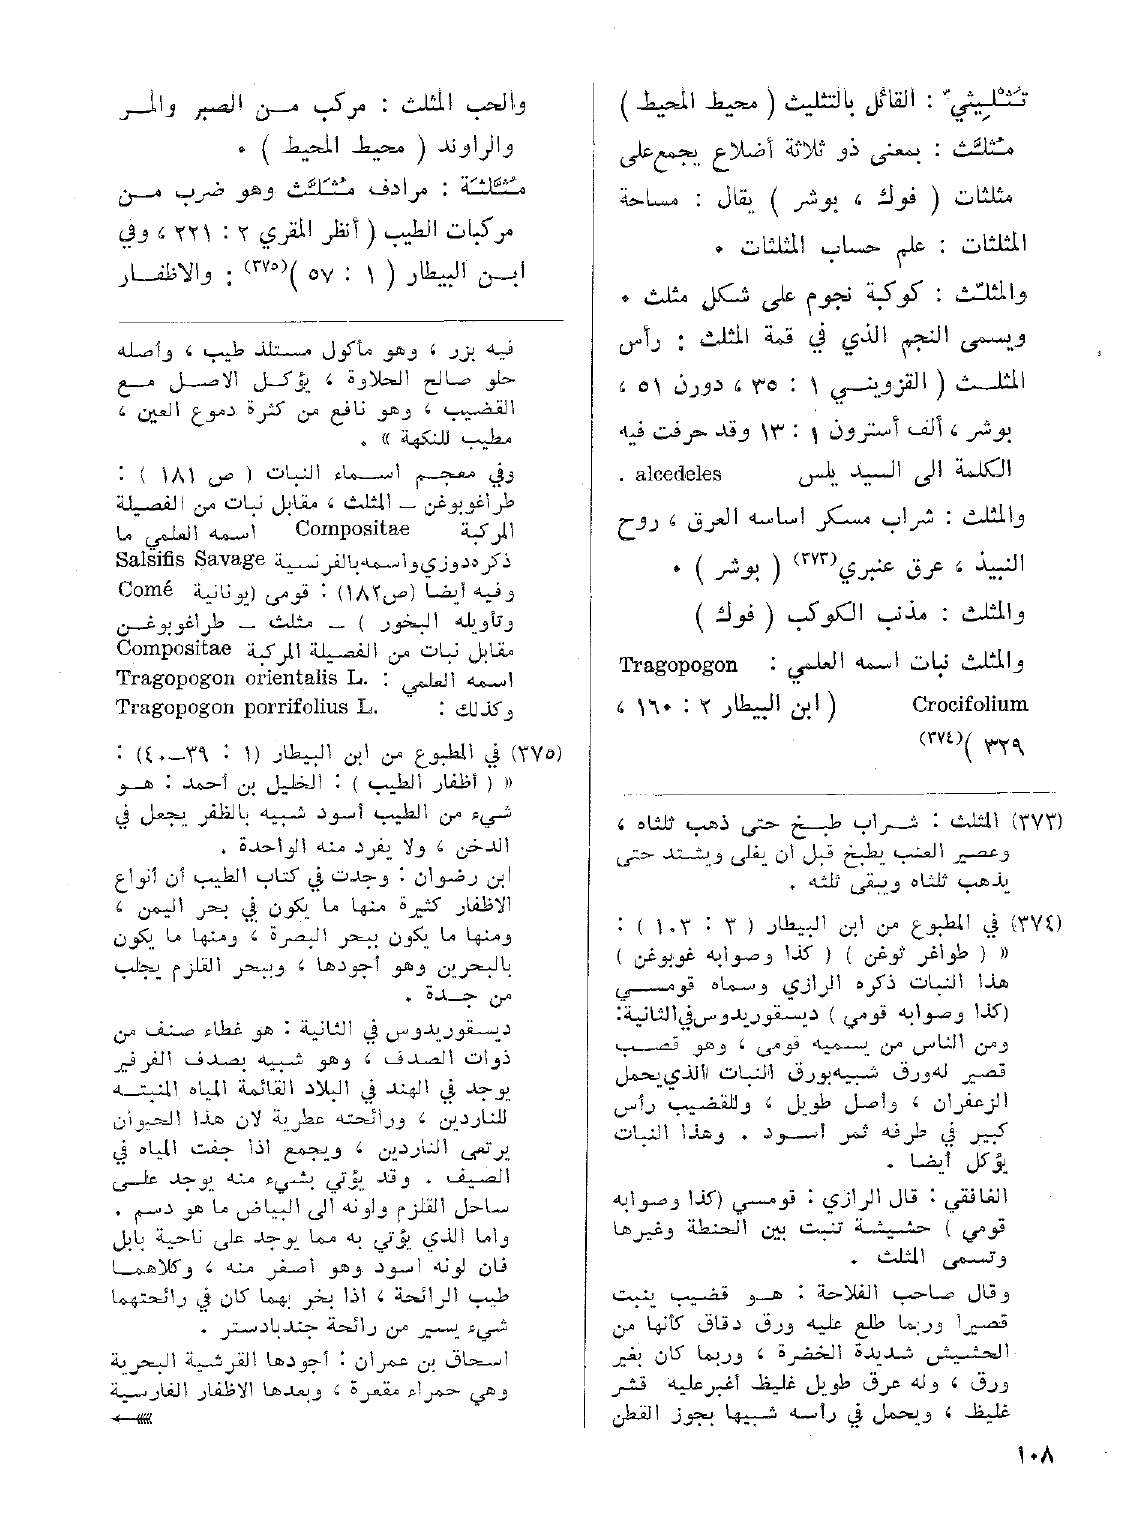 تَثْلِيثيّ : القائل بالتثليث ( محيط المحيط )
مثلّث : بمعنى ذو ثلاثة أضلاع يجمع على
مثلثات ( فوك ، بوشر ) يقال : مساحة
المثلثات : علم حساب المثلثات •
والمثلّث : كوكبة نجوم على شكل مثلث •
ويسمى النجم الذي في قمة المثلث : رأس
المثلث ( القزويني ١ : ٣٥ ، دورن ٥١ ،
بوشر ، ألف أسترون ١ : ١٣ وقد حرفت فيه
الكلمة الى السيد يلس alcedeles .
والمثلث : شراب مسكر اساسه العرق ، روح
النبيذ ، عرق عنبري(٣٧٣) ( بوشر ) •
والمثلث : مذنب الكوكب ( فوك )
والمثلث نبات اسمه العلمي : Tragopogon
Crocifolium ( ابن البيطار ٢ : ١٦٠ ،
٣٢٩ )(٣٧٤)
(٣٧٣) المثلث : شراب طبخ حتى ذهب ثلثاه ،
وعصير العنب يطبخ قبل أن يغلى ويشتد حتى
يذهب ثلثاه ويبقى ثلثه .
(٣٧٤) في المطبوع من ابن البيطار ( ٣ : ١٠٣ ) :
« ( طواغر ثوغن ) ( كذا وصوابه غوبوغن )
هذا النبات ذكره الرازي وسماه قومسي
(كذا وصوابه قومي ) ديسقوريدوس في الثانية:
ومن الناس من يسميه قومى ، وهو قصب
قصير له ورق شبيه بورق النبات الذي يحمل
الزعفران ، واصل طويل ، وللقضيب رأس
كبير في طرفه ثمر اسود . وهذا النبات
يؤكل أيضا .
الغافقي : قال الرازي : قومسي (كذا وصوابه
قومي ) حشيشة تنبت بين الحنطة وغيرها
وتسمى المثلث .
وقال صاحب الفلاحة : هو قضيب ينبت
قصيرا وربما طلع عليه ورق دقاق كأنها من
الحشيش شديدة الخضرة ، وربما كان بغير
ورق ، وله عرق طويل غليظ أغبر عليه قشر
غليظ ، ويحمل في رأسه شبيها بجوز القطن
والحب المثلث : مركب من الصبر والمر
والراوند ( محيط المحيط ) •
مثلّثة : مرادف مثلّث وهو ضرب من
مركبات الطيب ( أنظر المقري ٢ : ٢٢١ ، وفي
ابن البيطار ( ١ : ٥٧ )(٣٧٥) : والاظفار
فيه بزر ، وهو مأكول مستلذ طيب ، وأصله
حلو صالح الحلاوة ، يؤكل الاصل مع
القضيب ، وهو نافع من كثرة دموع العين ،
مطيب للنكهة » .
وفي معجم اسماء النبات ( ص ١٨١ ) :
طراغوبوغن ـ المثلث ، مقابل نبات من الفصيلة
المركبة Compositae اسمه العلمي ما
ذكره دوزي واسمه بالفرنسية Salsifis Savage
وفيه أيضا (ص١٨٢) : قومى (يونانية Comé
وتأويله البخور ) ـ مثلث ـ طراغوبوغن
مقابل نبات من الفصيلة المركبة Compositae
اسمه العلمي : Tragopogon orientalis L.
وكذلك : Tragopogon porrifolius L.
(٣٧٥) في المطبوع من ابن البيطار (١ : ٣٩ـ٤٠) :
« ( أظفار الطيب ) : الخليل بن أحمد : هو
شيء من الطيب أسود شبيه بالظفر يجعل في
الدخن ، ولا يفرد منه الواحدة .
ابن رضوان : وجدت في كتاب الطيب أن أنواع
الاظفار كثيرة منها ما يكون في بحر اليمن ،
ومنها ما يكون ببحر البصرة ، ومنها ما يكون
بالبحرين وهو أجودها ، وببحر القلزم يجلب
من جدة .
ديسقوريدوس في الثانية : هو غطاء صنف من
ذوات الصدف ، وهو شبيه بصدف الفرفير
يوجد في الهند في البلاد القائمة المياه المنبته
للناردين ، ورائحته عطرية لان هذا الحيوان
يرتعى الناردين ، ويجمع اذا جفت المياه في
الصيف . وقد يؤتي بشيء منه يوجد على
ساحل القلزم ولونه الى البياض ما هو دسم .
واما الذي يؤتي به مما يوجد على ناحية بابل
فان لونه اسود وهو اصغر منه ، وكلاهما
طيب الرائحة ، اذا بخر بهما كان في رائحتهما
شيء يسير من رائحة جندبادستر .
اسحاق بن عمران : أجودها القرشية البحرية
وهي حمراء مقعرة ، وبعدها الاظفار الفارسية
١٠٨